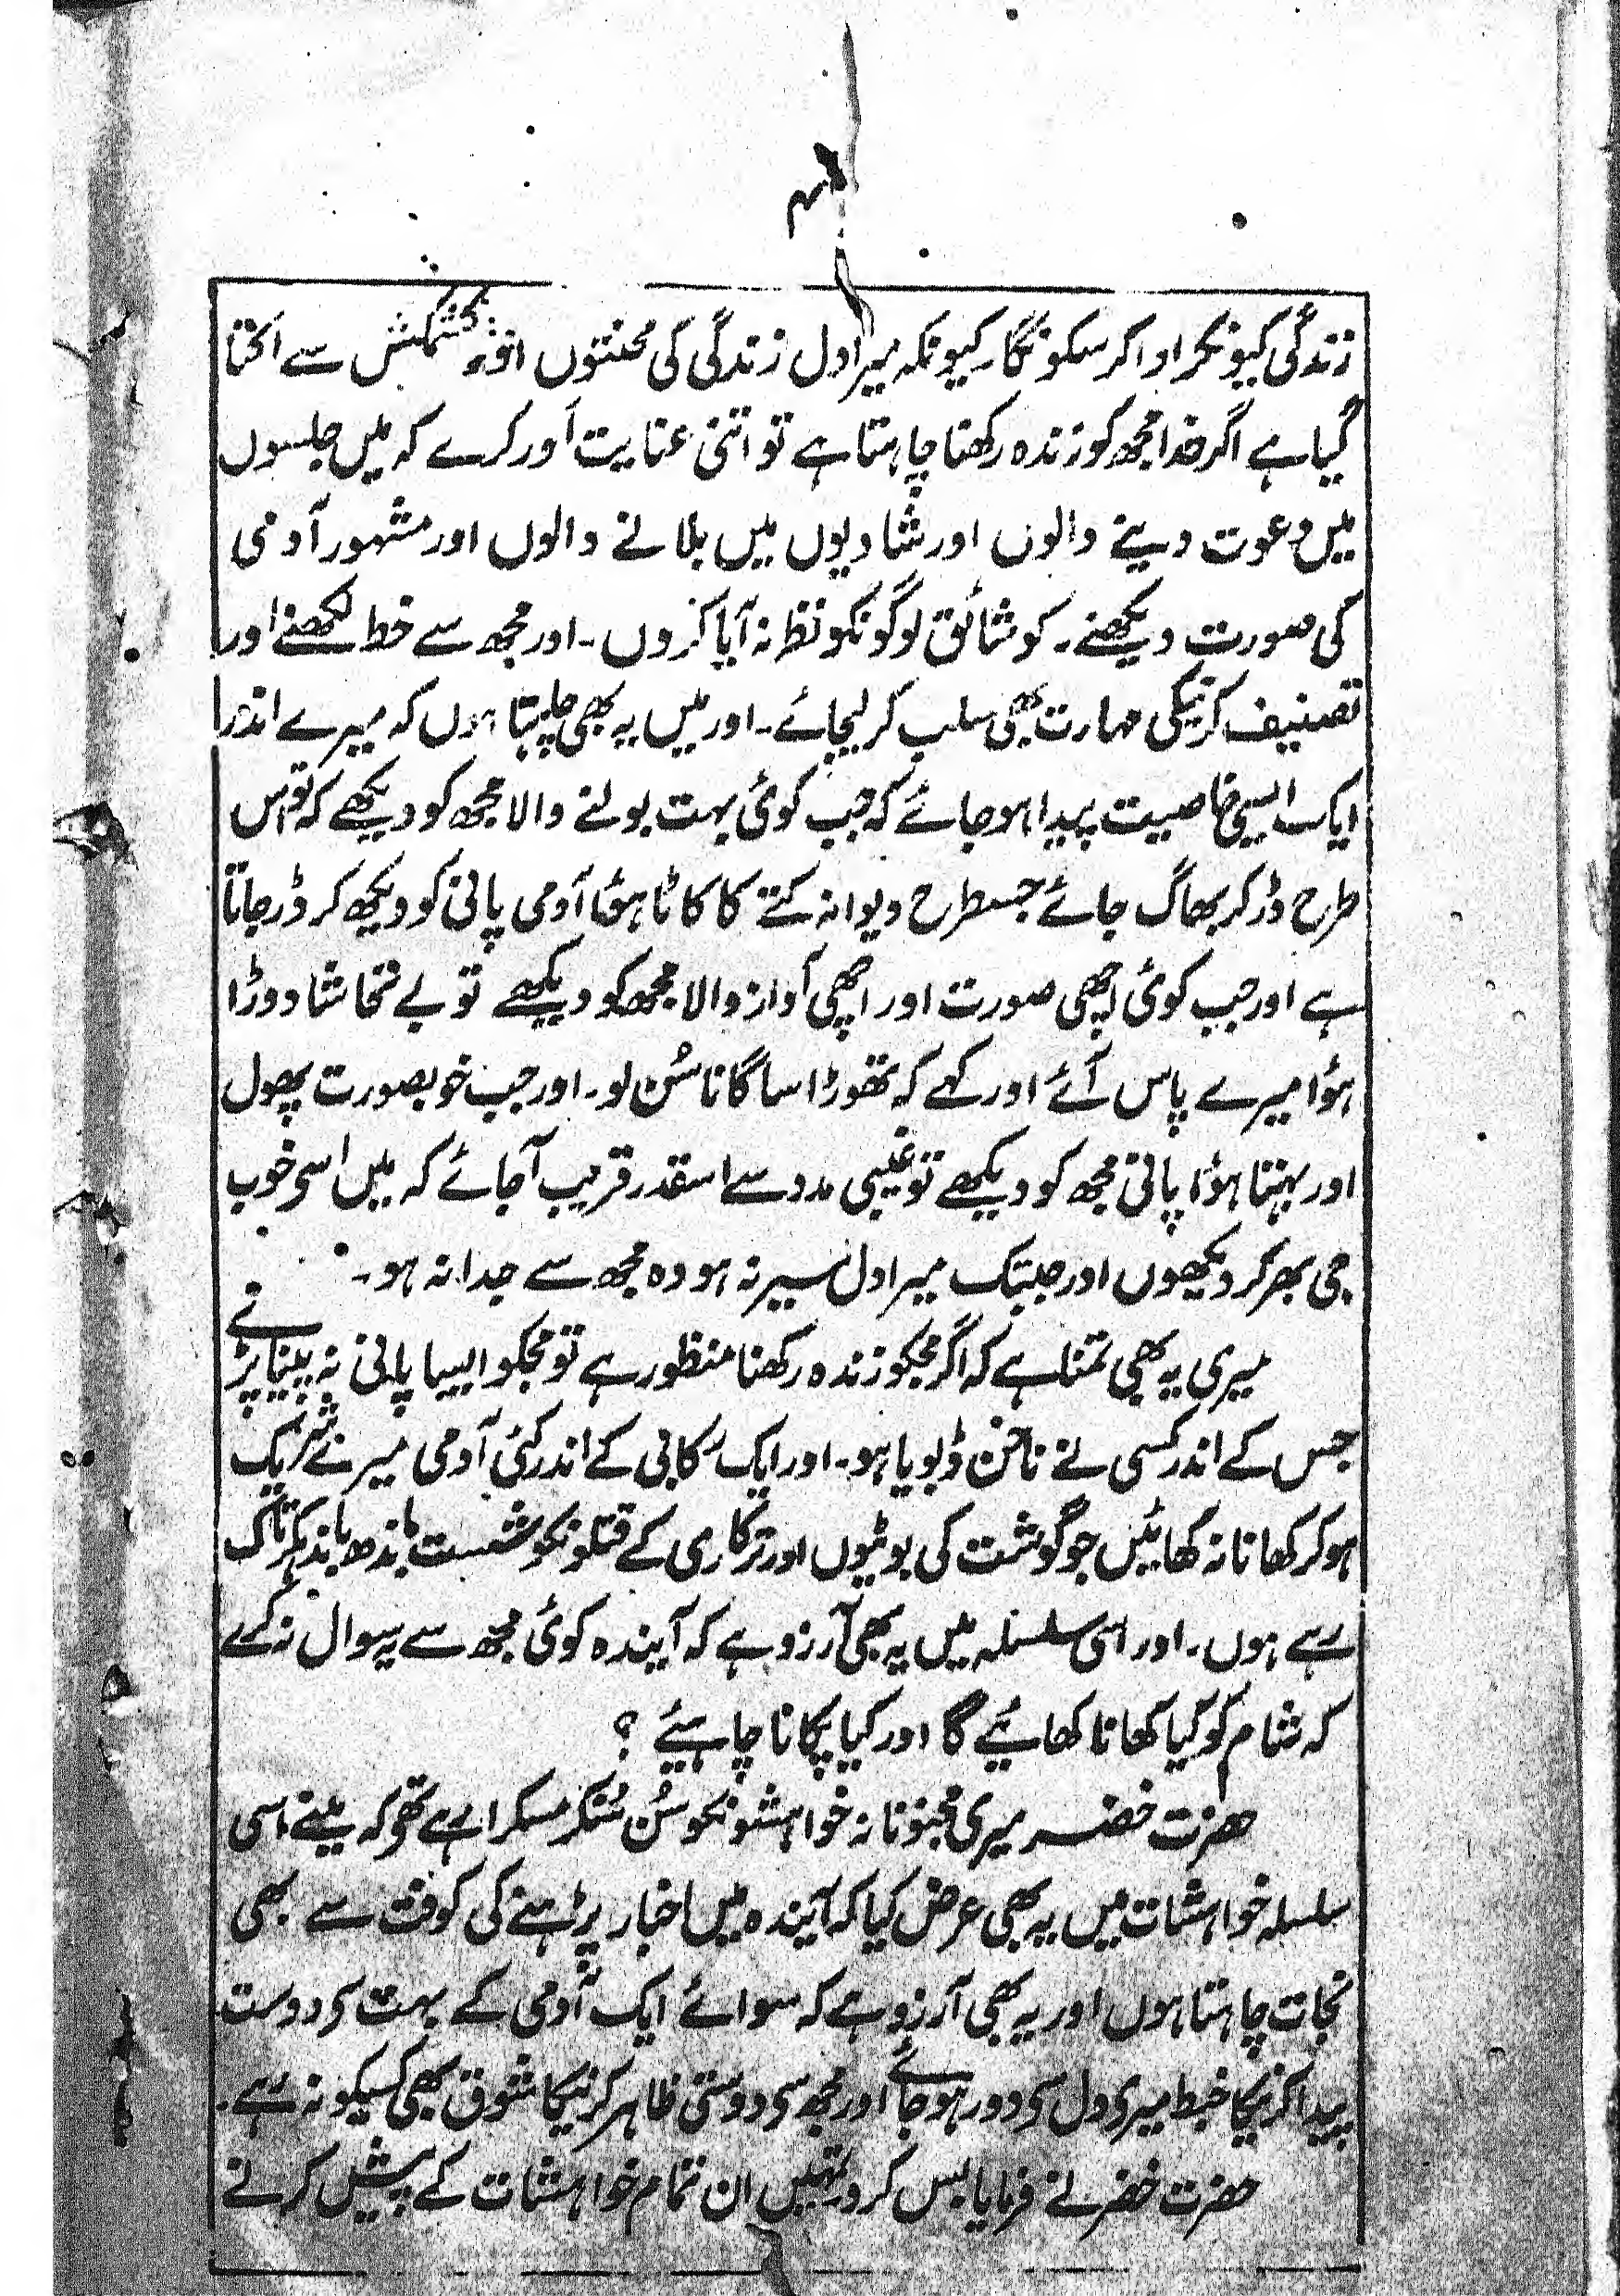 زندگی کیونکر ادا کر سکونگا۔ کیونکہ میرا دل زندگی کی محنتوں اور کشمکش سے اکتا
گیا ہے اگر خدا مجھ کو زندہ رکھنا چاہتا ہے تو اتنی عنایت اَور کرے کہ میں جلسوں
میں دعوت دینے والوں اور شادیوں میں بلانے والوں اور مشہور آدمی
کی صورت دیکھنے۔ کو شائق لوگونکو نظر نہ آیا کروں۔ اور مجھ سے خط لکھنے اور
تصنیف کرنیکی مہارت بھی سلب کر لیجائے۔ اور میں یہ بھی چاہتا ہوں کہ میرے اندر
ایک ایسی خاصیت پیدا ہو جائے کہ جب کوئی بہت بولنے والا مجھ کو دیکھے کہ تو اس
طرح ڈر کر بھاگ جائے جسطرح دیوانہ کتے کا کاٹا ہؤا آدمی پانی کو دیکھ کر ڈر جاتا
ہے اور جب کوئی اچھی صورت اور اچھی آواز والا مجھ کو دیکھے تو بے تحاشا دوڑا
ہؤا میرے پاس آئے اور کہے کہ تھوڑا سا گانا سُن لو۔ اور جب خوبصورت پھول
اور بہتا ہؤا پانی مجھ کو دیکھے تو غیبی مدد سے اسقدر قریب آجائے کہ میں اسی خوب
جی بھر کر دیکھوں اور جبتک میرا دل سیر نہ ہو وہ مجھ سے جدا نہ ہو۔
میری یہ بھی تمنا ہے کہ اگر مجکو زندہ رکھنا منظور ہے تو مجکو ایسا پانی نہ پینا پڑے
جس کے اندر کسی نے ناخن ڈبویا ہو۔ اور ایک رکابی کے اندر کئی آدمی میرے شریک
ہو کر کھانا نہ کھائیں جو گوشت کی بوٹیوں اور ترکاری کے قتلونکو شست باندھ باندہکر تاک
رہے ہوں۔ اور اسی سلسلہ میں یہ بھی آرزو ہے کہ آیندہ کوئی مجھ سے یہ سوال نہ کرے
کہ شام کو کیا کھانا کھائیے گا اور کیا پکانا چاہیئے ؟
حضرت خضر میری مجنونانہ خواہشونکو سُن سُنکر مسکرا رہے تھے کہ مینے اسی
سلسلہ خواہشات میں یہ بھی عرض کیا کہ آیندہ میں اخبار پڑہنے کی کوفت سے بھی
نجات چاہتا ہوں اور یہ بھی آرزو ہے کہ سوائے ایک آدمی کے بہت سی دوست
پیدا کرنیکا خبط میری دل سی دور ہو جائے اور مجھ سی دوستی ظاہر کرنیکا شوق بھی کسیکو نہ رہے۔
حضرت خضر نے فرمایا بس کرو تمہیں ان تمام خواہشات کے پیش کرنے